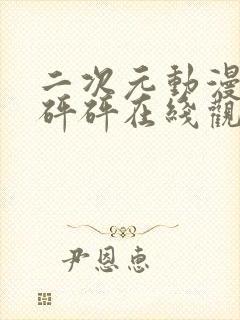 二次元動漫
砰砰在綫觀
尹恩惠